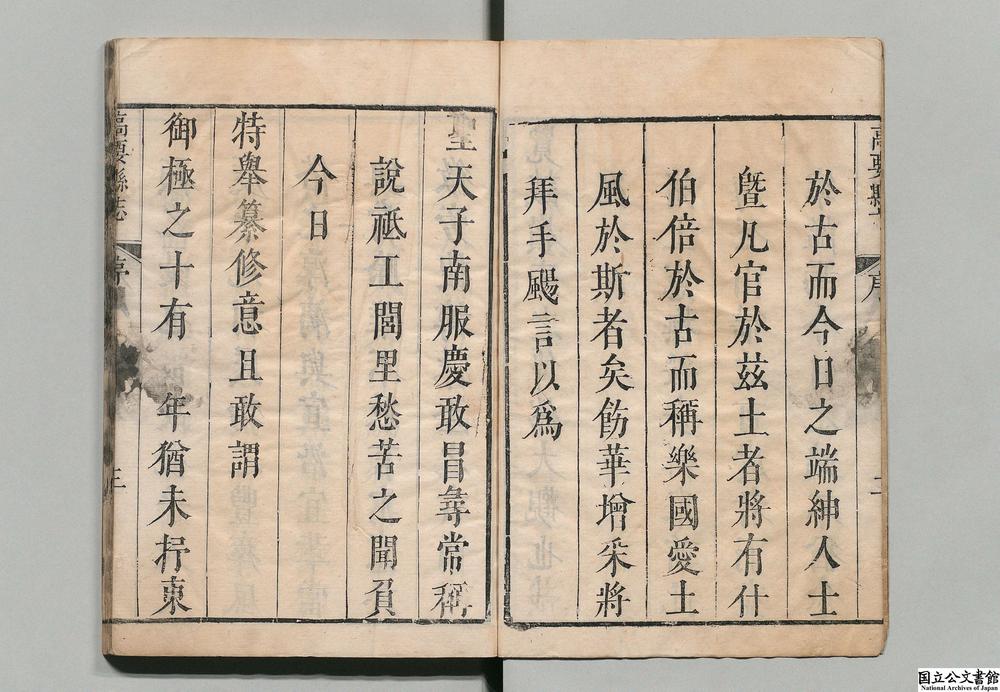 高要縣
序
二
於古而今日之端紳人士
曁凡官於茲土者將有什
伯倍於古而稱樂國愛土
風於斯者矣飭華增采將
拜手颺言以爲
聖天子南服慶敢冒尋常稱
說祗工閭里愁苦之聞負
今日
特舉纂修意且敢謂
御極之十有 年猶未抒東
高要縣志
序
三
国立公文書館
National Archives of Japan